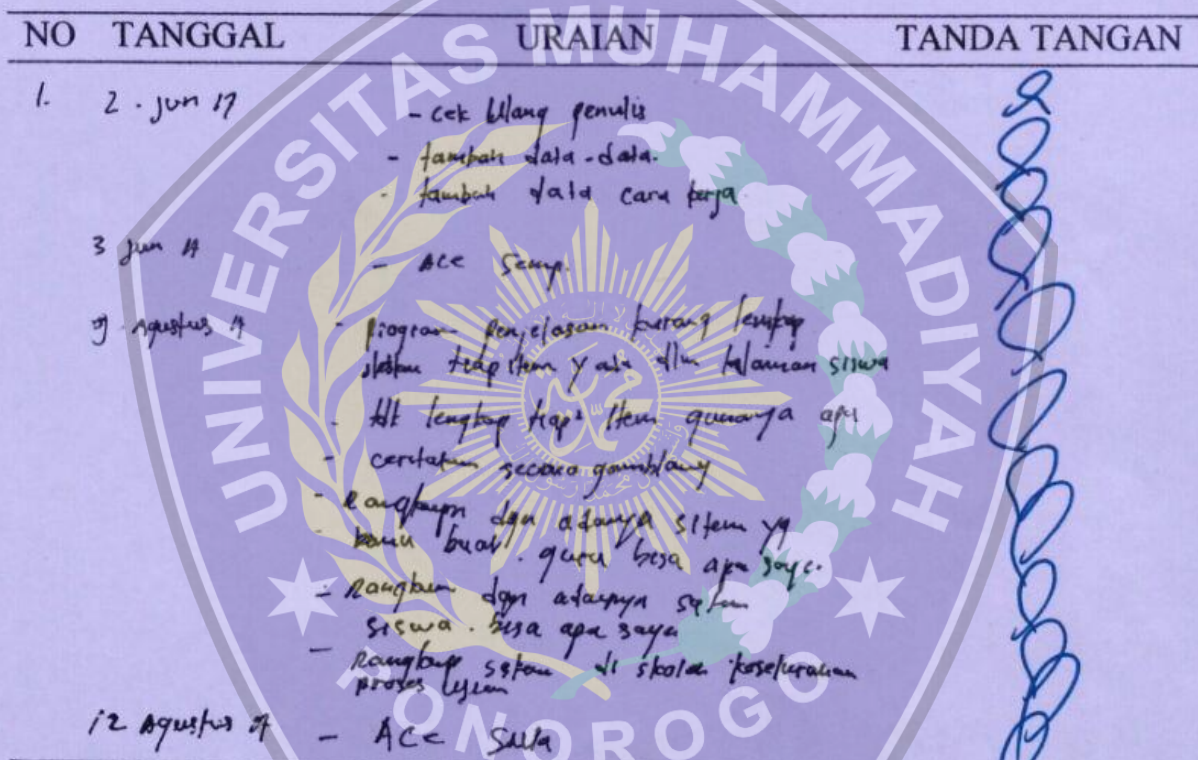 NO TANGGAL URAIAN TANDA TANGAN
1. 2. Jun 17 - cek Ulang penulis
- tambah data-data.
- tambah data cara kerja
3 Jun 17 - Acc
9 Agustus 17 - program penjelasan kurang lengkap
tiap item y ada dlm halaman siswa
- lengkap tiap² item gunanya apa
- ceritakan secara gamblang
- Rangkum dgn adanya sitem yg
kamu buat. guru bisa apa saya.
- Rangkum dgn adanya
siswa. bisa apa saya
- keseluruhan
proses ujian
12 Agustus 17 - Acc
UNIVERSITAS MUHAMMADIYAH
PONOROGO